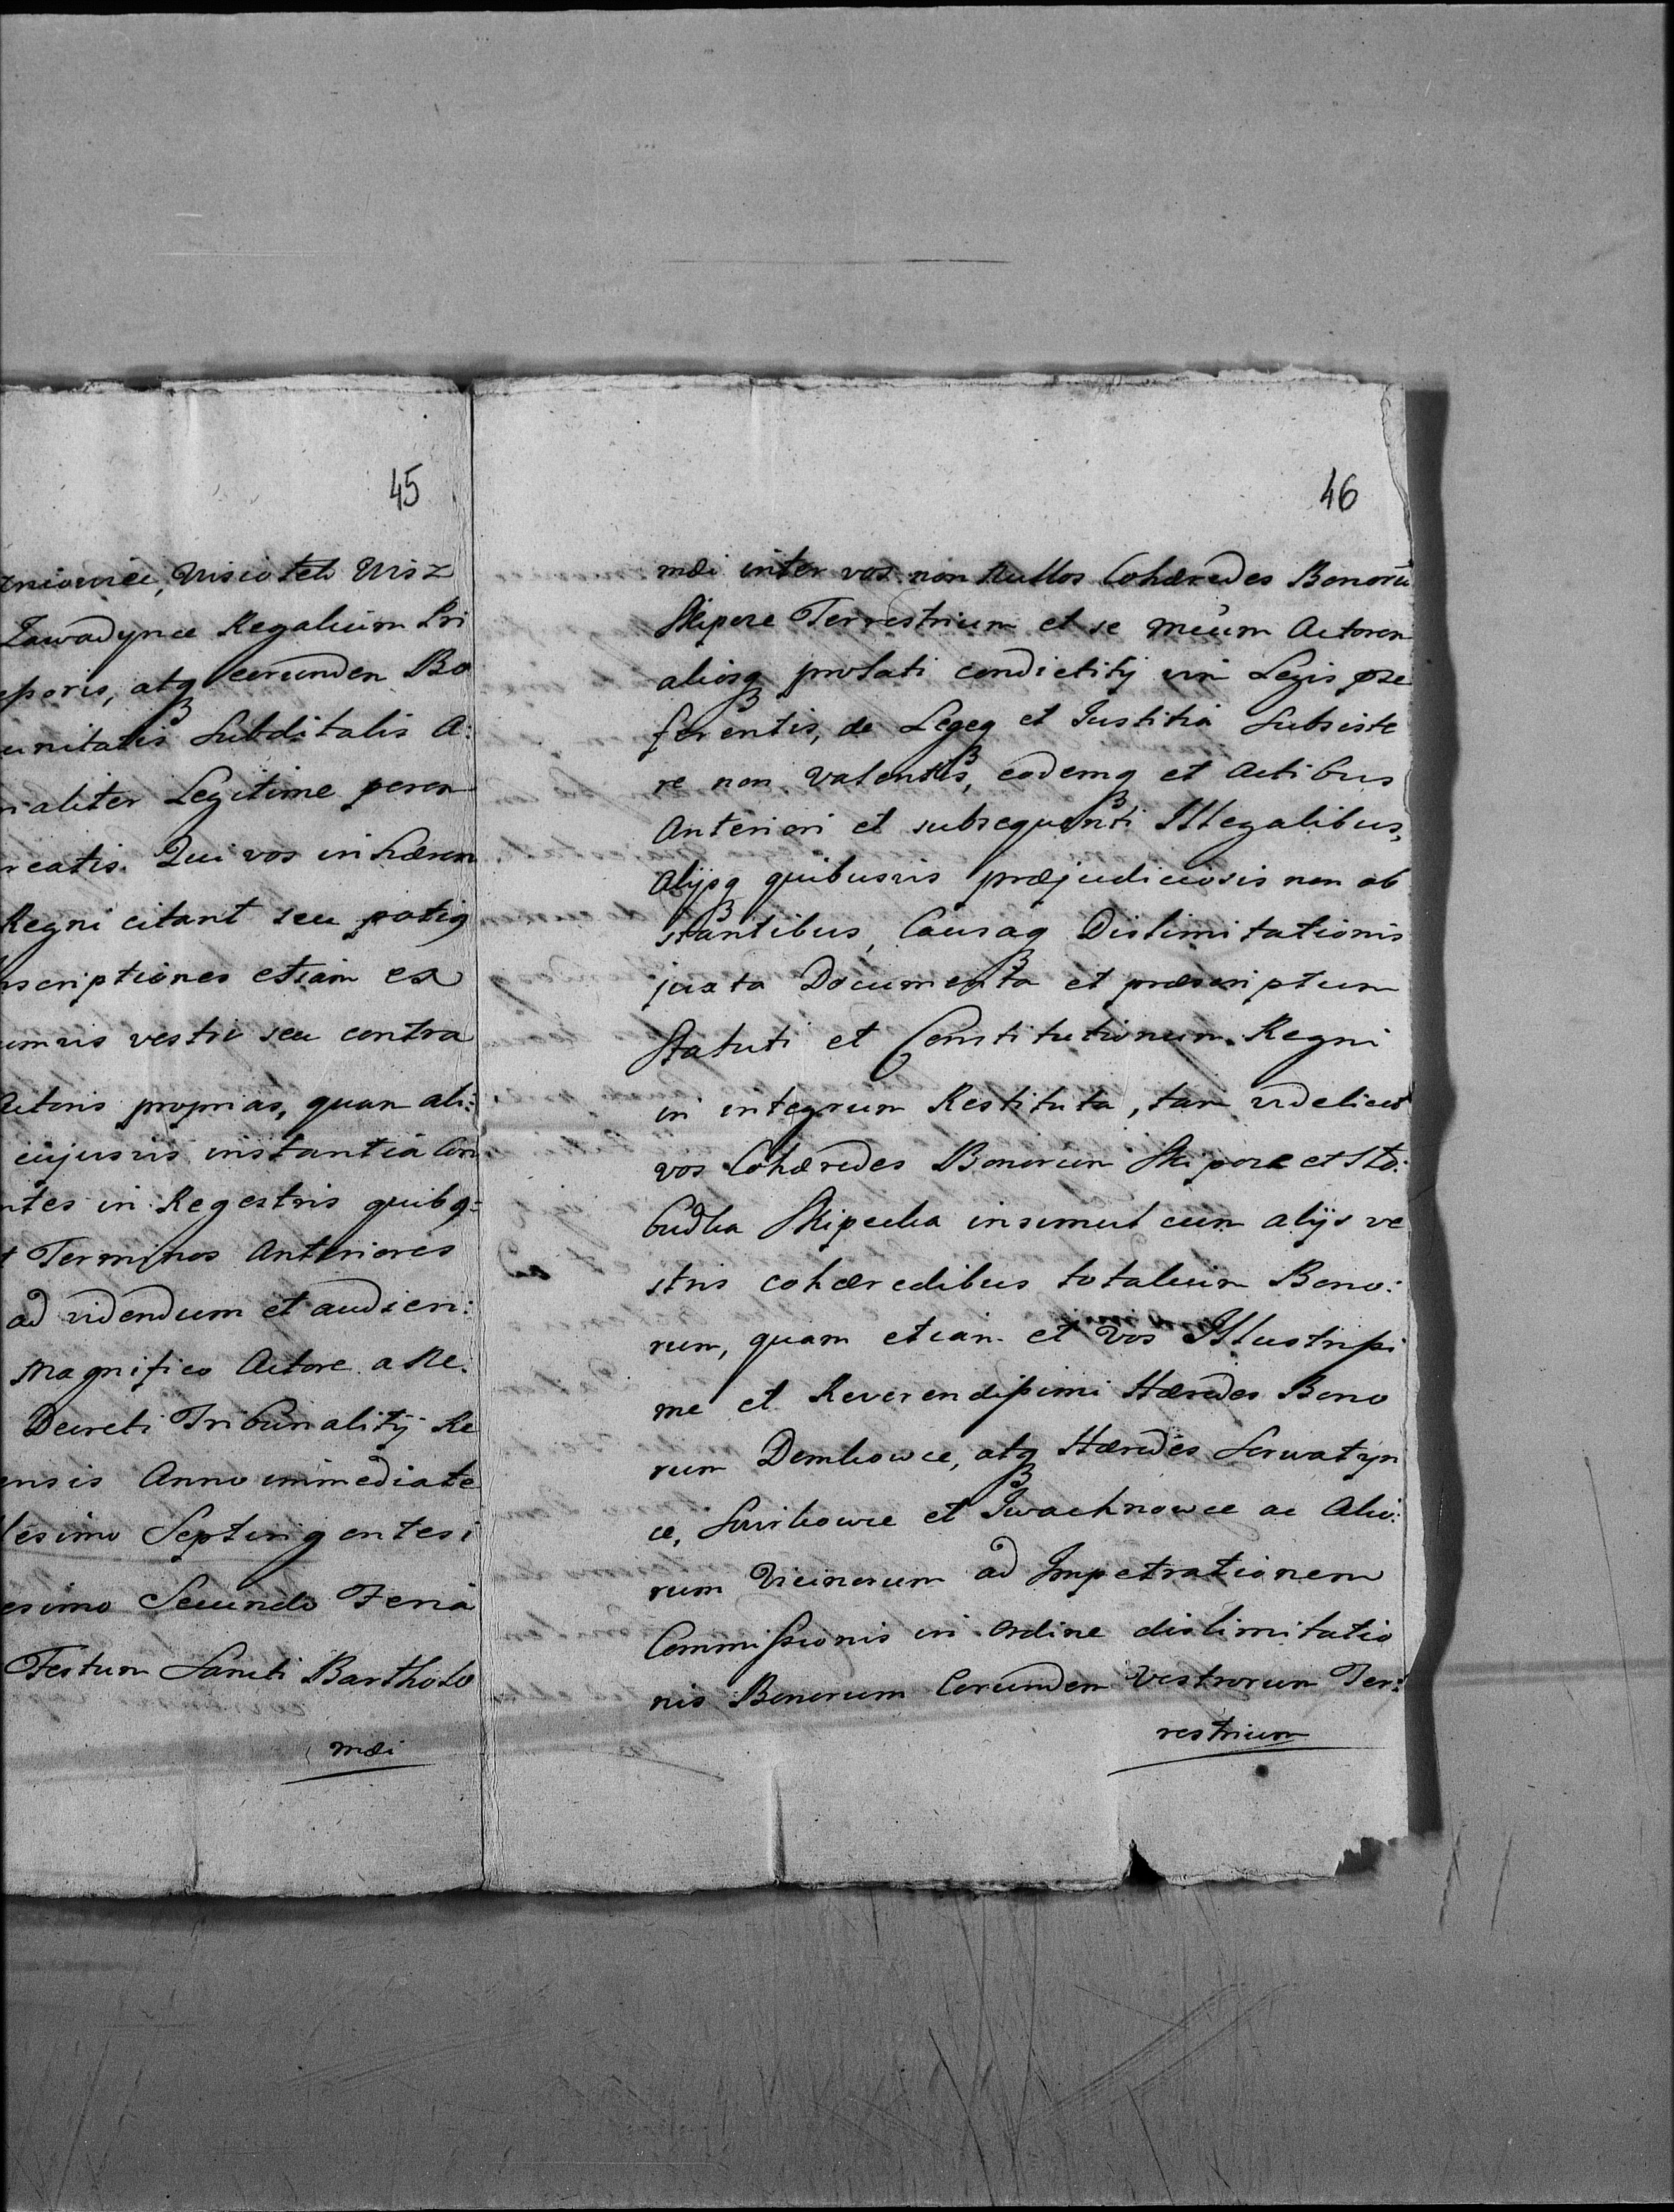 45
zniowiec, Wisiotek Wisz
Zawadynce Regalium Pri
ssoris, atq3 eorunden Bo
unitatis Subditalis A:
rialiter Legitime peren
reatis. Qui vos in hæren
Regni citant seu potiq
nscriptiones etiam ex
umvis vestri seu contra
Actoris proprias, quam ali:
cujusvis instantia Con
ntes in Regestris quibq:
t Terminos Anteriores
ad videndum et audien:
Magnifico Actore a Re.
Decreti Tribunalitij Re
ensis Anno immediate
lesimo Septingentesi
esimo Secundo Feria
Festum Sancti Bartholo
mæi
46
mæi inter vos non nullos Cohæredes Bonorū
Skipcze Terrestrium et se meum Actoren
aliosq3 prolati condictitij vim Legis præ
ferentis, de Legeq3 et Justitia Subsiste
re non valentis, eodemq3 et Actibus
Anteriori et subsequenti Illegalibus,
Alijsq3 quibusvis præjudiciosis non ob
stantibus, Causaq3 Dislimitationis
juxta Documenta et præscriptum
Statuti et Constitutionum Regni
in integrum Restituta, tam videlicet
vos Cohæredes Bonorum Skipcze et Slo:
budka Skipecka insimul cum alijs ve
stris cohæredibus totalium Bono:
rum, quam etiam et Vos Illustrissi
me et Reverendissimi Hæredes Bono
rum Dembowce, atq3 Hæredes Serwatyn
ce, Swirkowce et Iwachnowce ac Alio:
rum Vicinorum ad Impetrationem
Commissionis in ordine dislimitatio
nis Bonorum Eorumdem Vestrorum Ter:
restrium